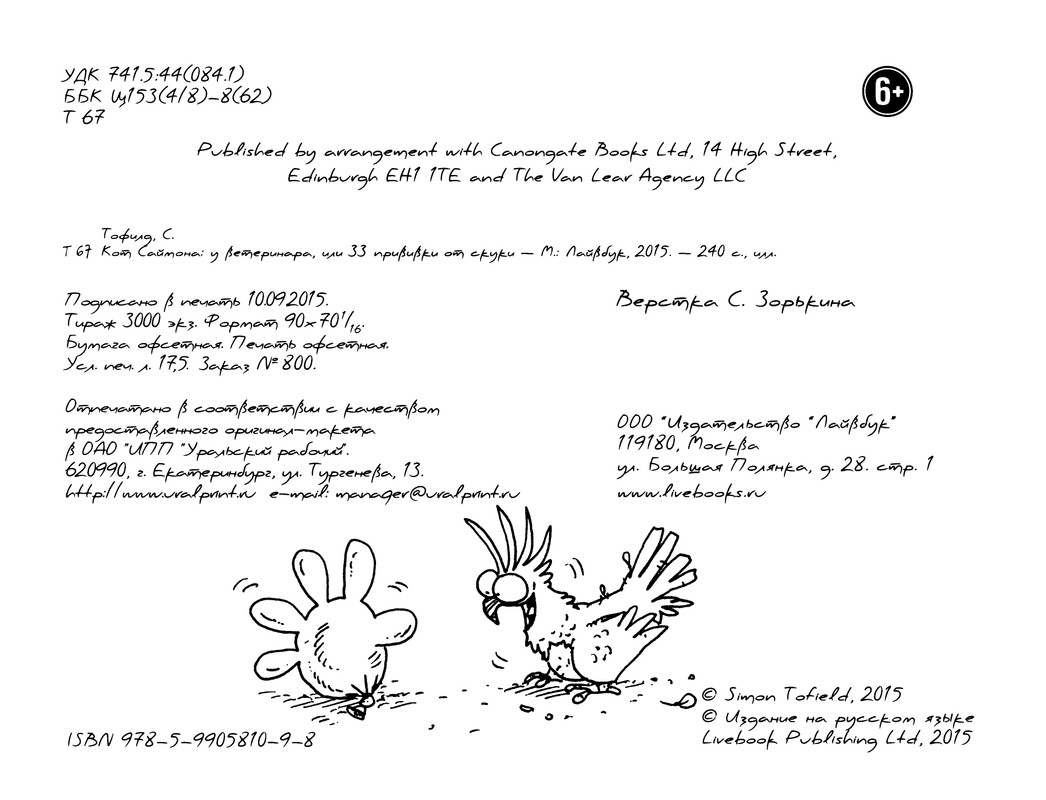 УДК 741.5:44(084.1)
ББК Щ153(4/8)-8(62)
Т 67
6+
Published by arrangement with Canongate Books Ltd, 14 High Street,
Edinburgh EH1 1TE and The Van Lear Agency LLC
Тофилд, С.
Т 67 Кот Саймона: у ветеринара, или 33 прививки от скуки — М.: Лайвбук, 2015. — 240 с., илл.
Подписано в печать 10.09.2015.
Тираж 3000 экз. Формат 90х70 1/16.
Бумага офсетная. Печать офсетная.
Усл. печ. л. 17,5. Заказ № 800.
Верстка С. Зорькина
Отпечатано в соответствии с качеством
предоставленного оригинал-макета
в ОАО "ИПП "Уральский рабочий".
620990, г. Екатеринбург, ул. Тургенева, 13.
http://www.uralprint.ru e-mail: manager@uralprint.ru
ООО "Издательство "Лайвбук"
119180, Москва
ул. Большая Полянка, д. 28. стр. 1
www.livebooks.ru
© Simon Tofield, 2015
© Издание на русском языке
Livebook Publishing Ltd, 2015
ISBN 978-5-9905810-9-8